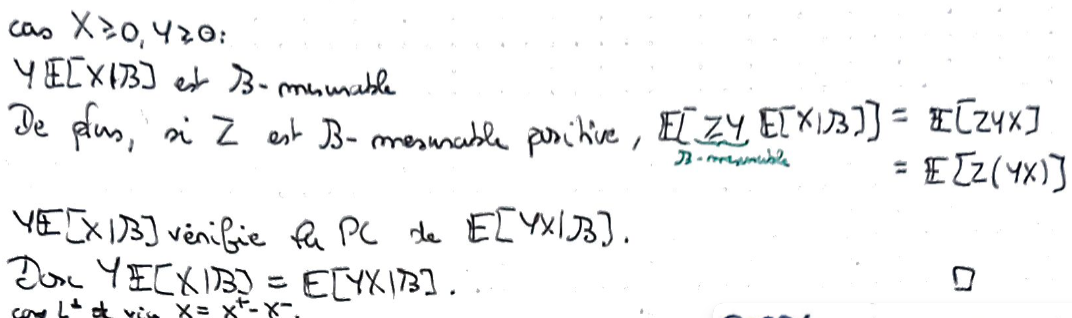 cas X ≥ 0, Y ≥ 0:
Y𝔼[X|ℬ] est ℬ-mesurable
De plus, si Z est ℬ-mesurable positive, 𝔼[ZY 𝔼[X|ℬ]] = 𝔼[ZYX]
ℬ-mesurable
= 𝔼[Z(YX)]
Y𝔼[X|ℬ] vérifie la PC de 𝔼[YX|ℬ].
Donc Y𝔼[X|ℬ] = 𝔼[YX|ℬ]. □
cas L¹ X = X⁺ - X⁻.